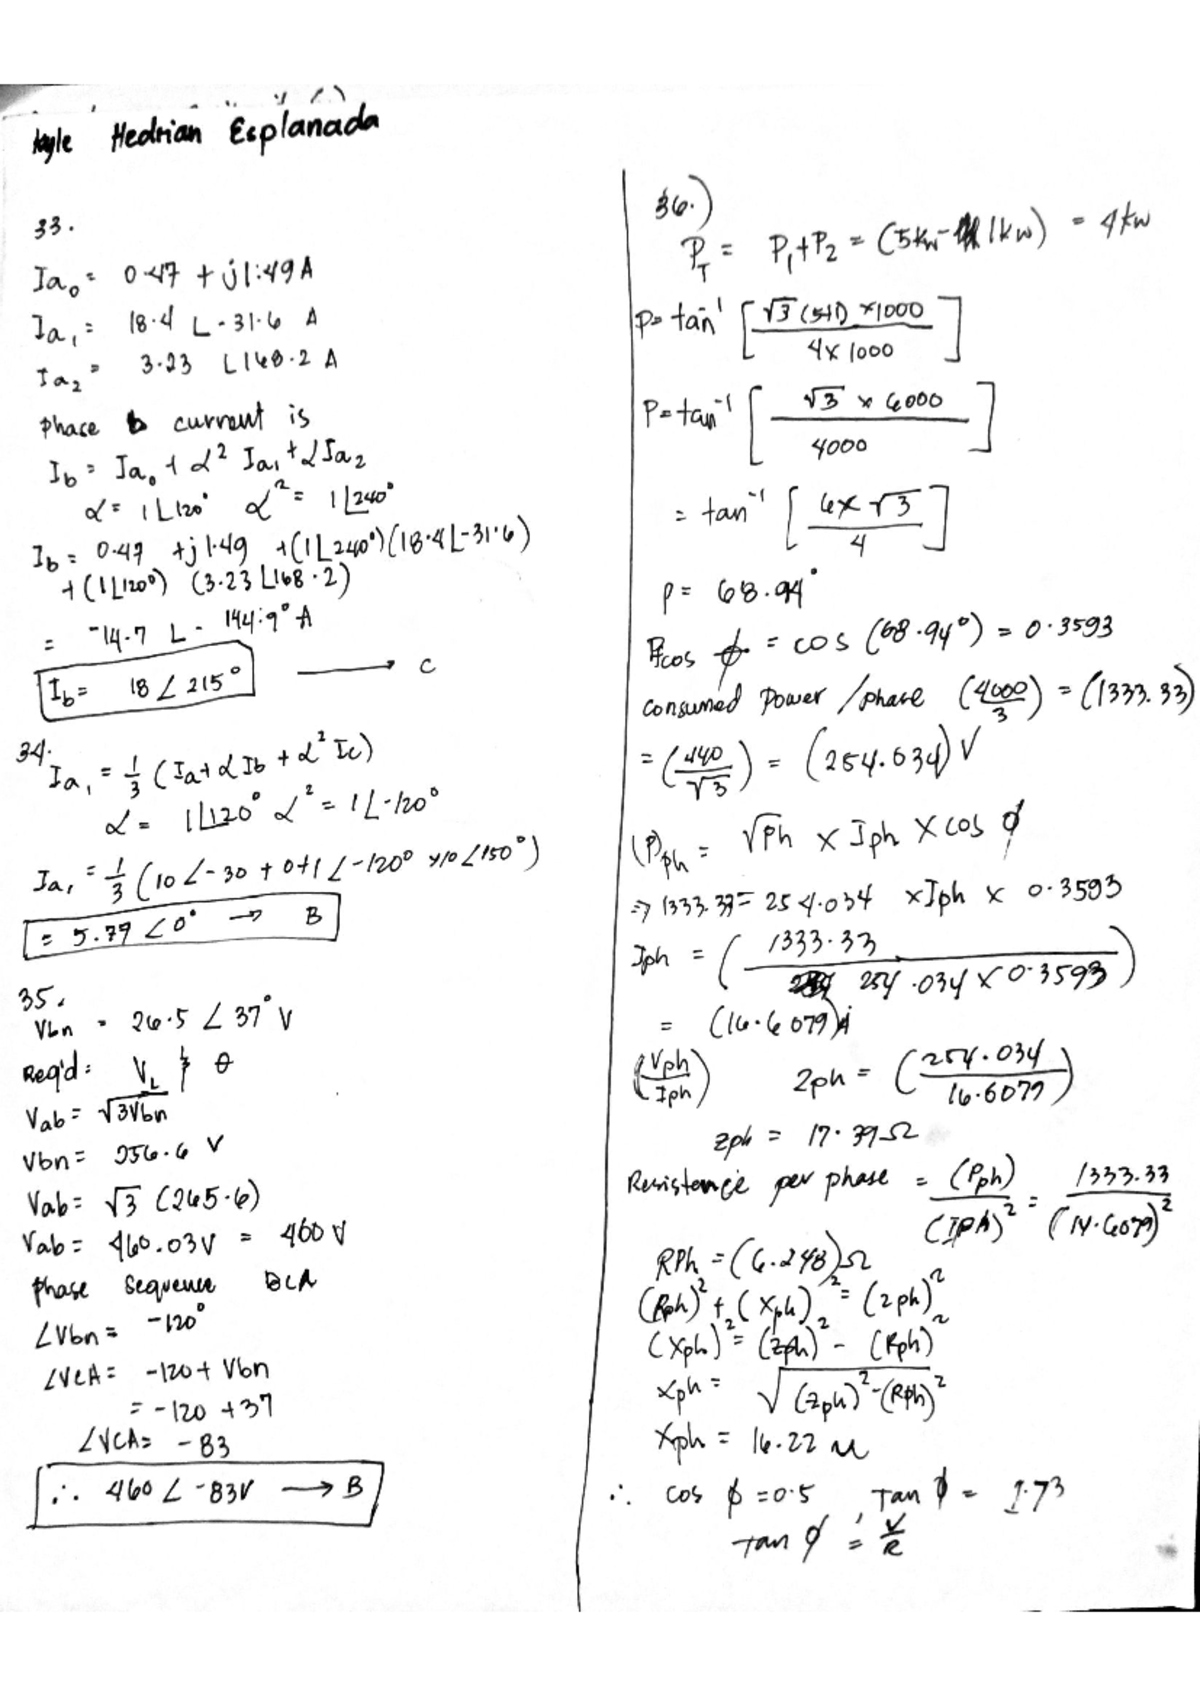 Kyle Hedrian Esplanada
33.
Ia₀ = 0.47 + j1.49 A
Ia₁ = 18.4 ∠-31.6 A
Ia₂ = 3.23 ∠168.2 A
phase b current is
Ib = Ia₀ + α² Ia₁ + αIa₂
α = 1∠120° α² = 1∠240°
Ib = 0.47 + j1.49 + (1∠240°)(18.4∠-31.6)
+ (1∠120°) (3.23∠168.2)
= -14.7 ∠- 144.9° A
Ib = 18∠215° → C
34.
Ia₁ = 1/3 (Ia + αIb + α² Ic)
α = 1∠120° α² = 1∠-120°
Ia₁ = 1/3 (10∠-30 + 0+1∠-120° x10∠150°)
= 5.77∠0° → B
35.
Vbn = 26.5∠37° V
Req'd: V_L & θ
Vab = √3Vbn
Vbn = 256.6 V
Vab = √3 (265.6)
Vab = 460.03V = 460 V
phase sequence BCA
∠Vbn = -120°
∠VCA = -120 + Vbn
= -120 + 37
∠VCA = -83
∴ 460∠-83V → B
36.)
P_T = P₁+P₂ = (5kw- 1kw) = 4kw
P = tan⁻¹ [√3 (5+1) x1000 / 4x1000]
P = tan⁻¹ [√3 x 6000 / 4000]
= tan⁻¹ [6x √3 / 4]
P = 68.94°
cos ϕ = cos (68.94°) = 0.3593
consumed power /phase (4000/3) = (1333.33)
= (440/√3) = (254.034) V
(P)ph = √Ph x Iph x cos ϕ
⇒ 1333.33 = 254.034 xIph x 0.3593
Iph = (1333.33 / 254.034 x 0.3593)
= (16.6079)A
(Vph/Iph) Zph = (254.034 / 16.6079)
Zph = 17.39Ω
Resistance per phase = (Pph)/(IPh)² = 1333.33/(14.6079)²
RPh = (6.248)Ω
(Rph)² + (Xph)² = (Zph)²
(Xph)² = (Zph)² - (Rph)²
Xph = √(Zph)²-(Rph)²
Xph = 16.22
∴ cos ϕ = 0.5 , Tan ϕ = 1.73
Tan ϕ = V/R